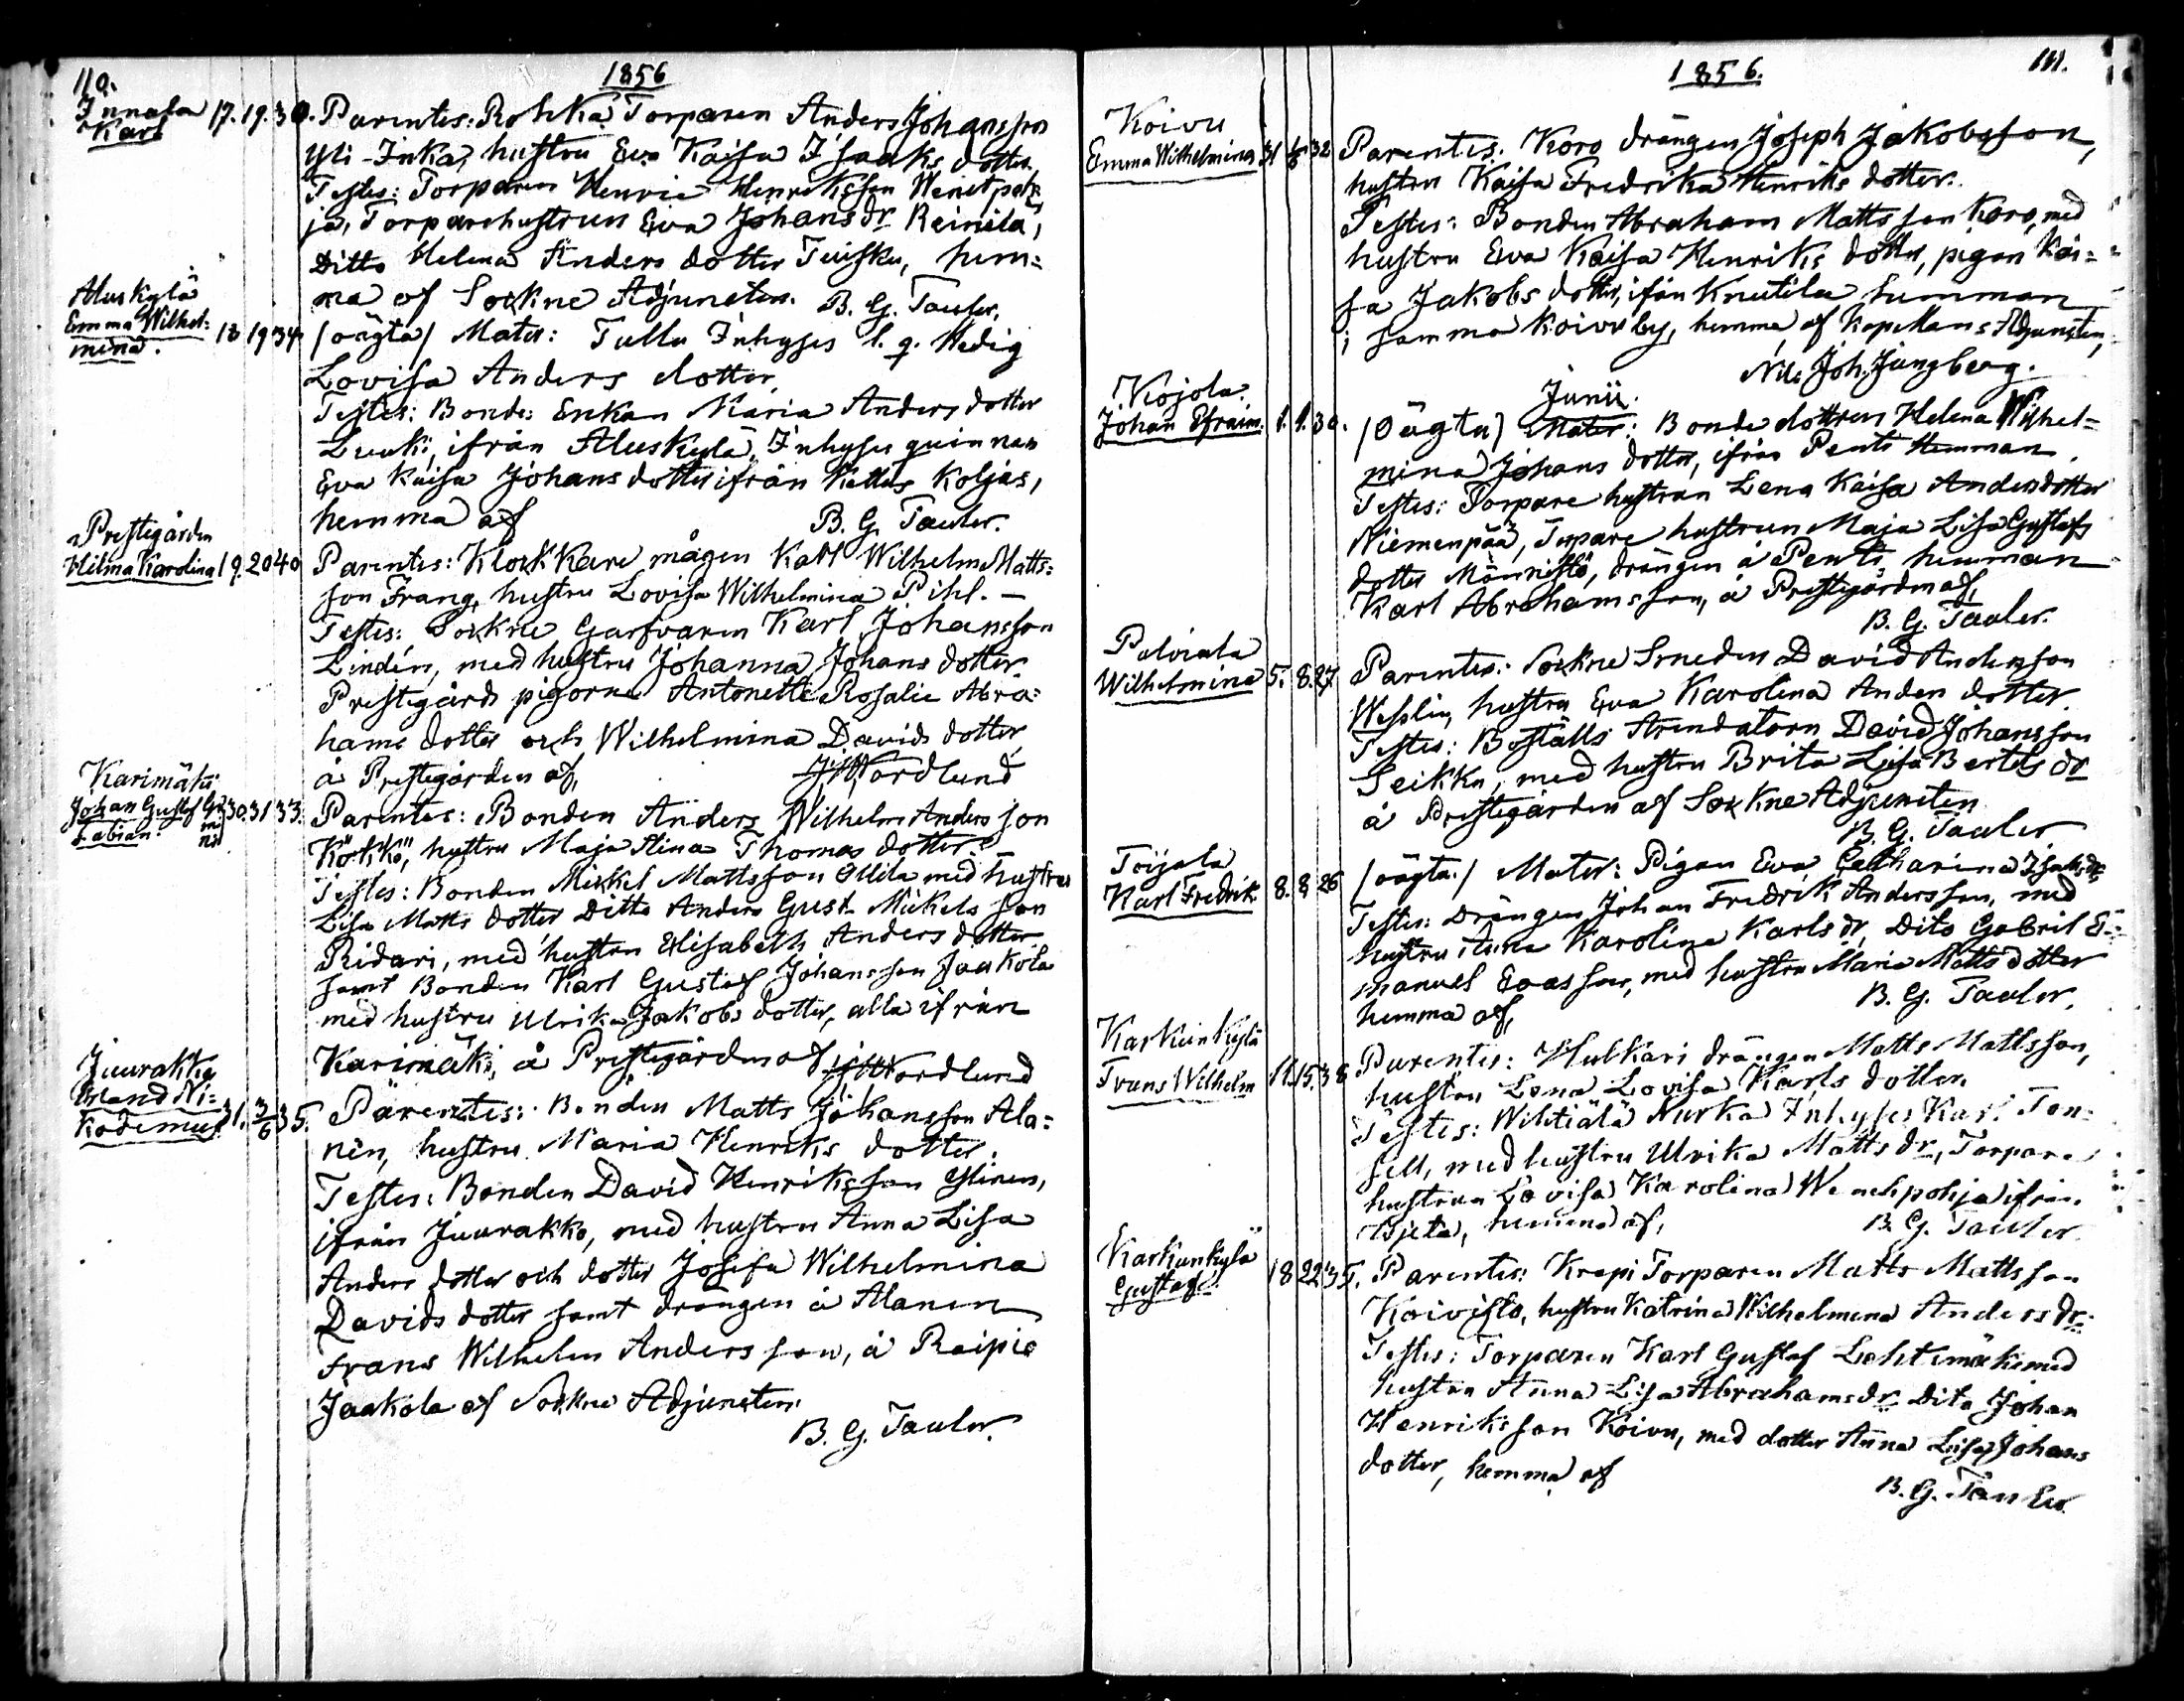 110.
1856
Innala 17. 19. 30. Parentes: Rohka Torparen Anders Johansson
Karl
Yli-Inka, hustru Eva Kaisa Isaaks dotter.
Testes: Torparen Henric Henriksson Wenetpoh
ja, Torparehustrun Eva Johans dr Reinilä,
Ditto Helena Anders dotter Tuisku, hem=
ma af Sockne Adjuncten. B. G. Tauler.
Aluskylä
Emma Wilhel= 18 19 34 /oägta/ Mater: Tullu Inhyses l. q. Hedig
mina.
Lovisa Anders dotter
Testes: Bonde Enkan Maria Anders dotter
Luuki, ifrån Aluskylä, Inhyses quinnan
Eva Kaisa Johans dotter ifrån Kattus Koljas,
hemma af B. G. Tauler.
Prestegården
Hilma Karolina 19. 20 40 Parentes: Klockkare mågen Karl Wilhelm Matts=
son Frang, hustru Lovisa Wilhelmina Pihl. —
Testes: Sockne Garfvaren Karl Johansson
Lindén, med hustru Johanna Johans dotter
Prestegårds pigorna Antonette Rosalie Abra=
hams dotter och Wilhelmina Davids dotter
å Prestegården af, Nordlund
Karimäki
Johan Gustaf 30. 31 33. Parentes: Bonden Anders Wilhelm Anders son
Fabian.
Kökkö, hustru Maja Stina Thomas dotter.
Testes: Bonden Mickel Mattsson Ollila med hustru
Lisa Matts dotter Ditto Anders Gust. Mickels son
Ridari, med hustru Elisabeth Anders dotter
samt Bonden Karl Gustaf Johansson Jaakola
med hustru Ulrika Jakobs dotter, alla ifrån
Karimäki, å Prestegården af Nordlund
Juurakko
Erland Ni= 31. 3/6 35. Parentes: Bonden Matts Johansson Ala=
kodemus
nen, hustru Maria Henriks dotter.
Testes: Bonden David Henriksson Ylinen,
ifrån Juurakko, med hustru Anna Lisa
Anders dotter och dotter Josefa Wilhelmina
Davids dotter samt drängen å Alanen
Frans Wilhelm Anders son, å Raipio
Jaakola af Sockne Adjuncten
B. G. Tauler.
1856.
111.
Koivu
Emma Wilhelmina 31 32 Parentes. Koro drängen Joseph Jakobsson,
hustru Kaisa Fredrika Henriks dotter.
Testes: Bonden Abraham Mattsson Koro, med
hustru Eva Kaisa Henriks dotter, pigan Kai=
sa Jakobs dotter, ifrån Knutila hemman
i samma Koivu by, hemma af Kapellans Adjuncten,
Nils Joh. Jungberg.
Junii.
Kojola.
Johan Efraim. 1. 1. 30. /Oägta/ Mater: Bonde dottren Helena Wilhel=
mina Johans dotter, ifrån Penti Hemman.
Testes: Torpare hustrun Lena Kaisa Andersdotter
Niemenpää, Torpare hustrun Maja Lisa Gustafs
dotter Männistö, drängen å Penti hemman
Karl Abrahamsson, å Prestegården af,
B. G. Tauler.
Palviala
Wilhelmina 5. 8. 27 Parentes: Sockne Smeden David Andersson
Wesslin, hustru Eva Karolina Anders dotter.
Testes: Boställs Arendatorn David Johansson
Seikku, med hustru Brita Lisa Bertels dr
å Prestegården af Sockne Adjuncten
B. G. Tauler
Toijala
Karl Fredrik 8. 8 26 /oägta/ Mater: Pigan Eva Catharina Isaks dr
Testes: Drängen Johan Fredrik Andersson, med
hustru Stina Karolina Karls dr, Dito Gabriel E=
manuel Evasson, med hustru Maria Matts dotter
hemma af, B. G. Tauler.
Karkunkylä
Frans Wilhelm 11. 15. 38 Parentes: Hulkari drängen Matts Mattsson,
hustru Lena Lovisa Karls dotter.
Testes: Wihtiälä Nurka Inhyses Karl Ton=
sell, med hustru Ulrika Matts dr, Torpare
hustrun Lovisa Karolina Wenehpohja ifrån
, hemma af, B. G. Tauler
Karkunkylä
Gustaf. 18 22 35. Parentes: Krepi Torparen Matts Mattsson
Koivisto, hustru Katrina Wilhelmina Anders dr.
Testes: Torparen Karl Gustaf Lehtimäki med
hustru Anna Lisa Abrahams dr Dito Johan
Henriksson Koivu, med dotter Anna Lisa Johans
dotter, hemma af
B. G. Tauler.